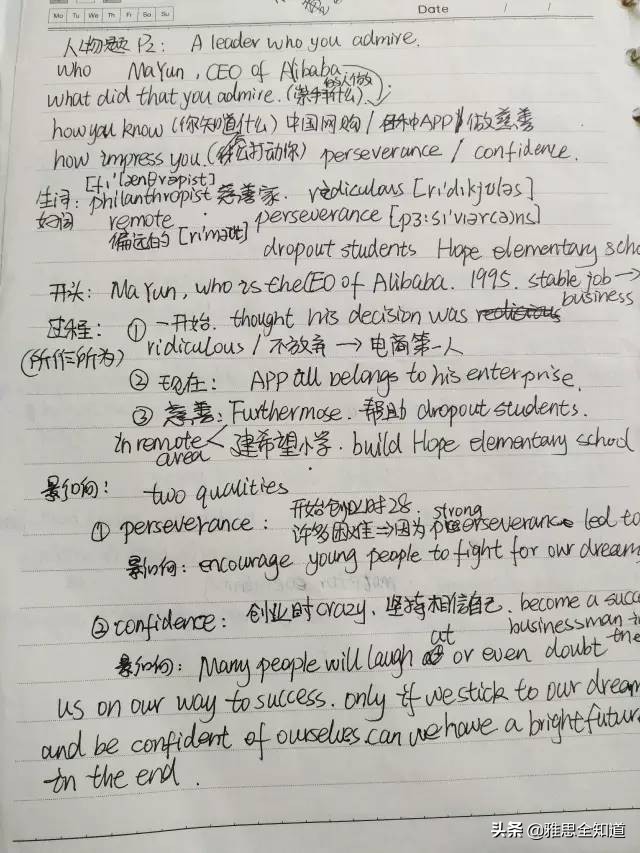 Mo Tu We Th Fr Sa Su
Date
人物题 P2: A leader who you admire.
who Ma Yun, CEO of Alibaba
what did that you admire. (崇拜什么)
how you know (你知道什么) 中国网购 / 各种APP / 做慈善
how impress you. (怎么打动你) perseverance / confidence.
生词: philanthropist 慈善家. rediculous [ri'dikjʊləs]
好词 remote perseverance
偏远的 dropout students Hope elementary scho
开头: Ma Yun, who is the CEO of Alibaba. 1995. stable job →
business
过程: ① 一开始. thought his decision was
(所作所为) ridiculous / 不放弃 → 电商第一人
② 现在: APP all belongs to his enterprise.
③ 慈善: Furthermose. 帮助 dropout students.
in remote < 建希望小学. build Hope elementary school
area
影响: two qualities
开始创业时28. strong
① perseverance: 许多困难 ⇒ 因为 perseverance led to
影响: encourage young people to fight for our dream
② confidence: 创业时 crazy, 坚持相信自己. become a succe
businessman in
at the
影响: Many people will laugh or even doubt
us on our way to success. only if we stick to our dream
and be confident of ourselves. can we have a bright futur
in the end.
头条 @雅思全知道